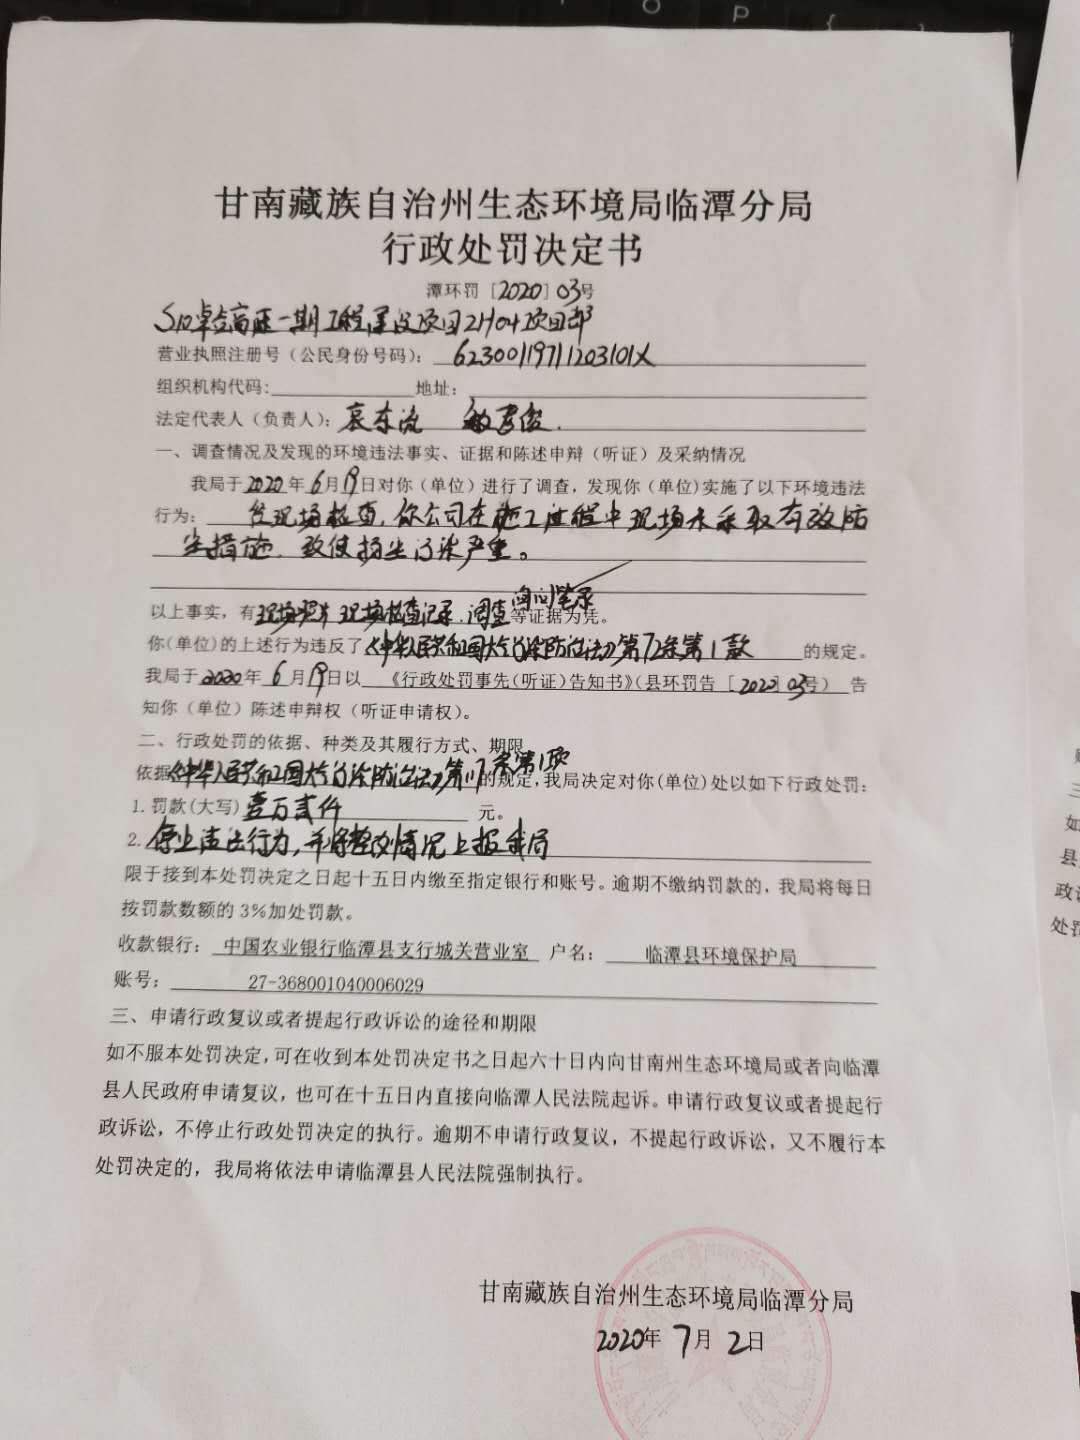 甘南藏族自治州生态环境局临潭分局
行政处罚决定书
潭环罚[2020]03号
S10卓合高速一期工程建设项目ZH04项目部
营业执照注册号（公民身份号码）：62300119711203101X
组织机构代码: 地址:
法定代表人（负责人）：袁东流 敏
一、调查情况及发现的环境违法事实、证据和陈述申辩（听证）及采纳情况
我局于2020年6月19日对你（单位）进行了调查，发现你（单位)实施了以下环境违法
行为：经现场检查，你公司在施工过程中现场未采取有效防
尘措施，致使扬尘污染严重。
以上事实，有现场照片 现场检查记录，调查询问笔录等证据为凭。
你(单位)的上述行为违反了《中华人民共和国大气污染防治法》第72条第1款的规定。
我局于2020年6月19日以《行政处罚事先(听证)告知书》(县环罚告[2020]03号）告
知你（单位）陈述申辩权（听证申请权）。
二、行政处罚的依据、种类及其履行方式、期限
依据《中华人民共和国大气污染防治法》第117条第1项的规定,我局决定对你(单位)处以如下行政处罚:
1.罚款(大写)壹万贰仟元。
2.停止违法行为，并将整改情况上报我局
限于接到本处罚决定之日起十五日内缴至指定银行和账号。逾期不缴纳罚款的，我局将每日
按罚款数额的3%加处罚款。
收款银行：中国农业银行临潭县支行城关营业室 户名：临潭县环境保护局
账号：27-368001040006029
三、申请行政复议或者提起行政诉讼的途径和期限
如不服本处罚决定,可在收到本处罚决定书之日起六十日内向甘南州生态环境局或者向临潭
县人民政府申请复议，也可在十五日内直接向临潭人民法院起诉。申请行政复议或者提起行
政诉讼，不停止行政处罚决定的执行。逾期不申请行政复议，不提起行政诉讼，又不履行本
处罚决定的，我局将依法申请临潭县人民法院强制执行。
甘南藏族自治州生态环境局临潭分局
2020年7月2日